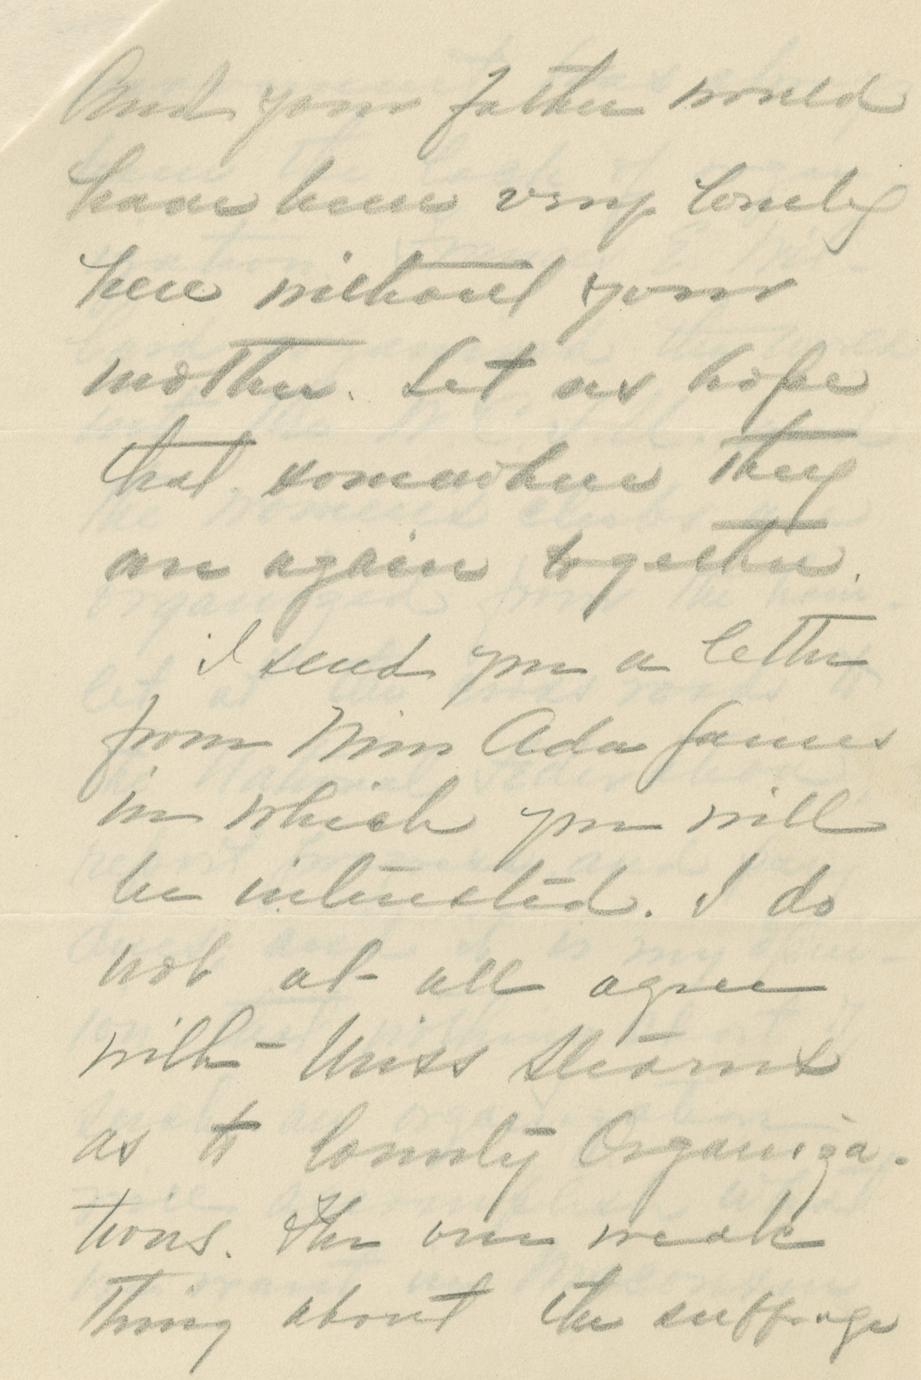 And your father would
have been very lonely
here without your
mother. Let us hope
that somewhere they
are again together.
I send you a letter
from Miss Ada James
in which you will
be interested. I do
not at all agree
with Miss Stearns
as to County Organiza-
tions. The one weak
thing about the suffrage